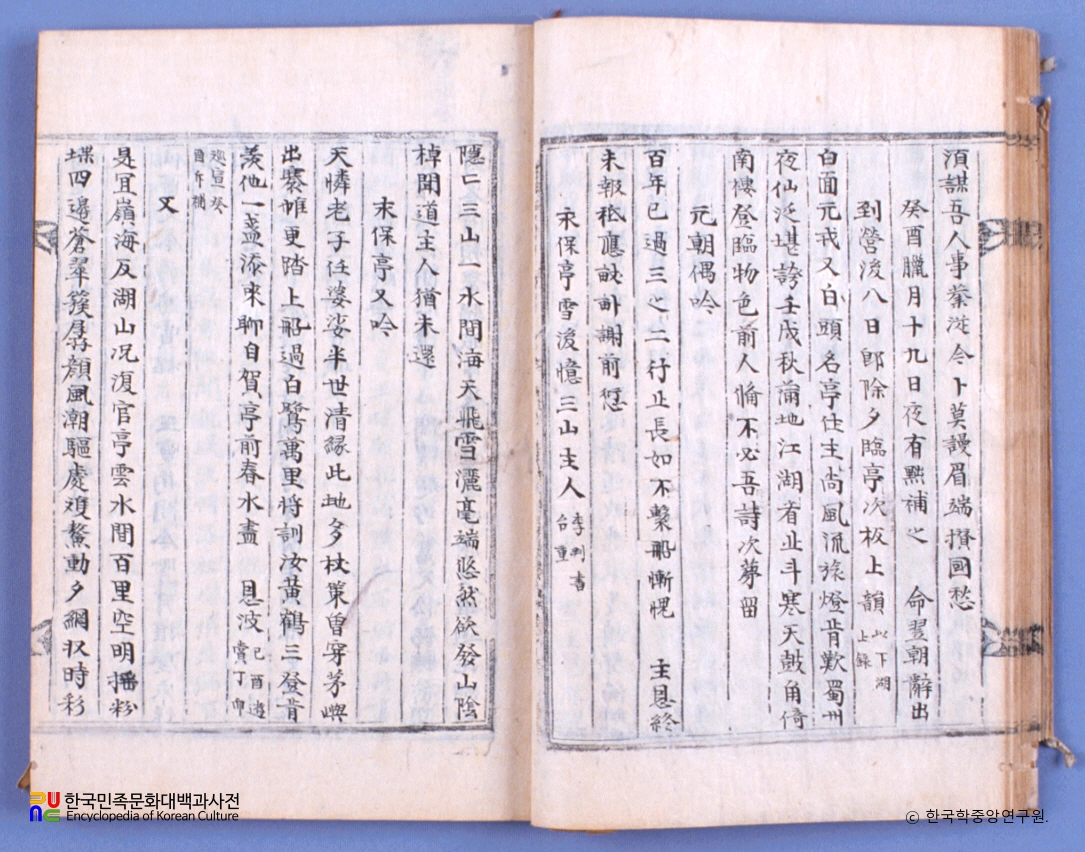 須謀吾人事業從今卜莫謾眉端攢國愁
癸酉臘月十九日夜有黙補之 命翌朝辭出
到營後八日卽除夕臨亭次板上韻 以下湖上錄
白面元戎又白頭名亭佳生尚風流旅燈肯歎蜀州
夜仙泛堪誇壬戌秋滿地江湖看北斗寒天鼓角倚
南樓登臨物色前人備不必吾詩次第留
元朝偶吟
百年已過三之二行止長如不繫船慚愧 主恩終
未報秪應訟訃謝前愆
永保亭雪後憶三山主人 李判書台重
隱二三山一水間海天飛雪灑毫端悠然欲發山陰
棹聞道主人猶未還
永保亭又吟
天憐老子任婆娑半世清緣此地多杖策曾穿茅嶼
出褰帷更踏上船過白鷺萬里將訓汝黃鶴三登肯
羨他一盞添來聊自賀亭前春水盡 恩波 己酉遊賞丁卯
酉許補
又
是宜嶺海反湖山况復官亭雲水間百里空明搖粉
堞四邊蒼翠簇孱顏風潮驅處瓊鰲動夕網收時彩
한국민족문화대백과사전
Encyclopedia of Korean Culture
ⓒ 한국학중앙연구원.